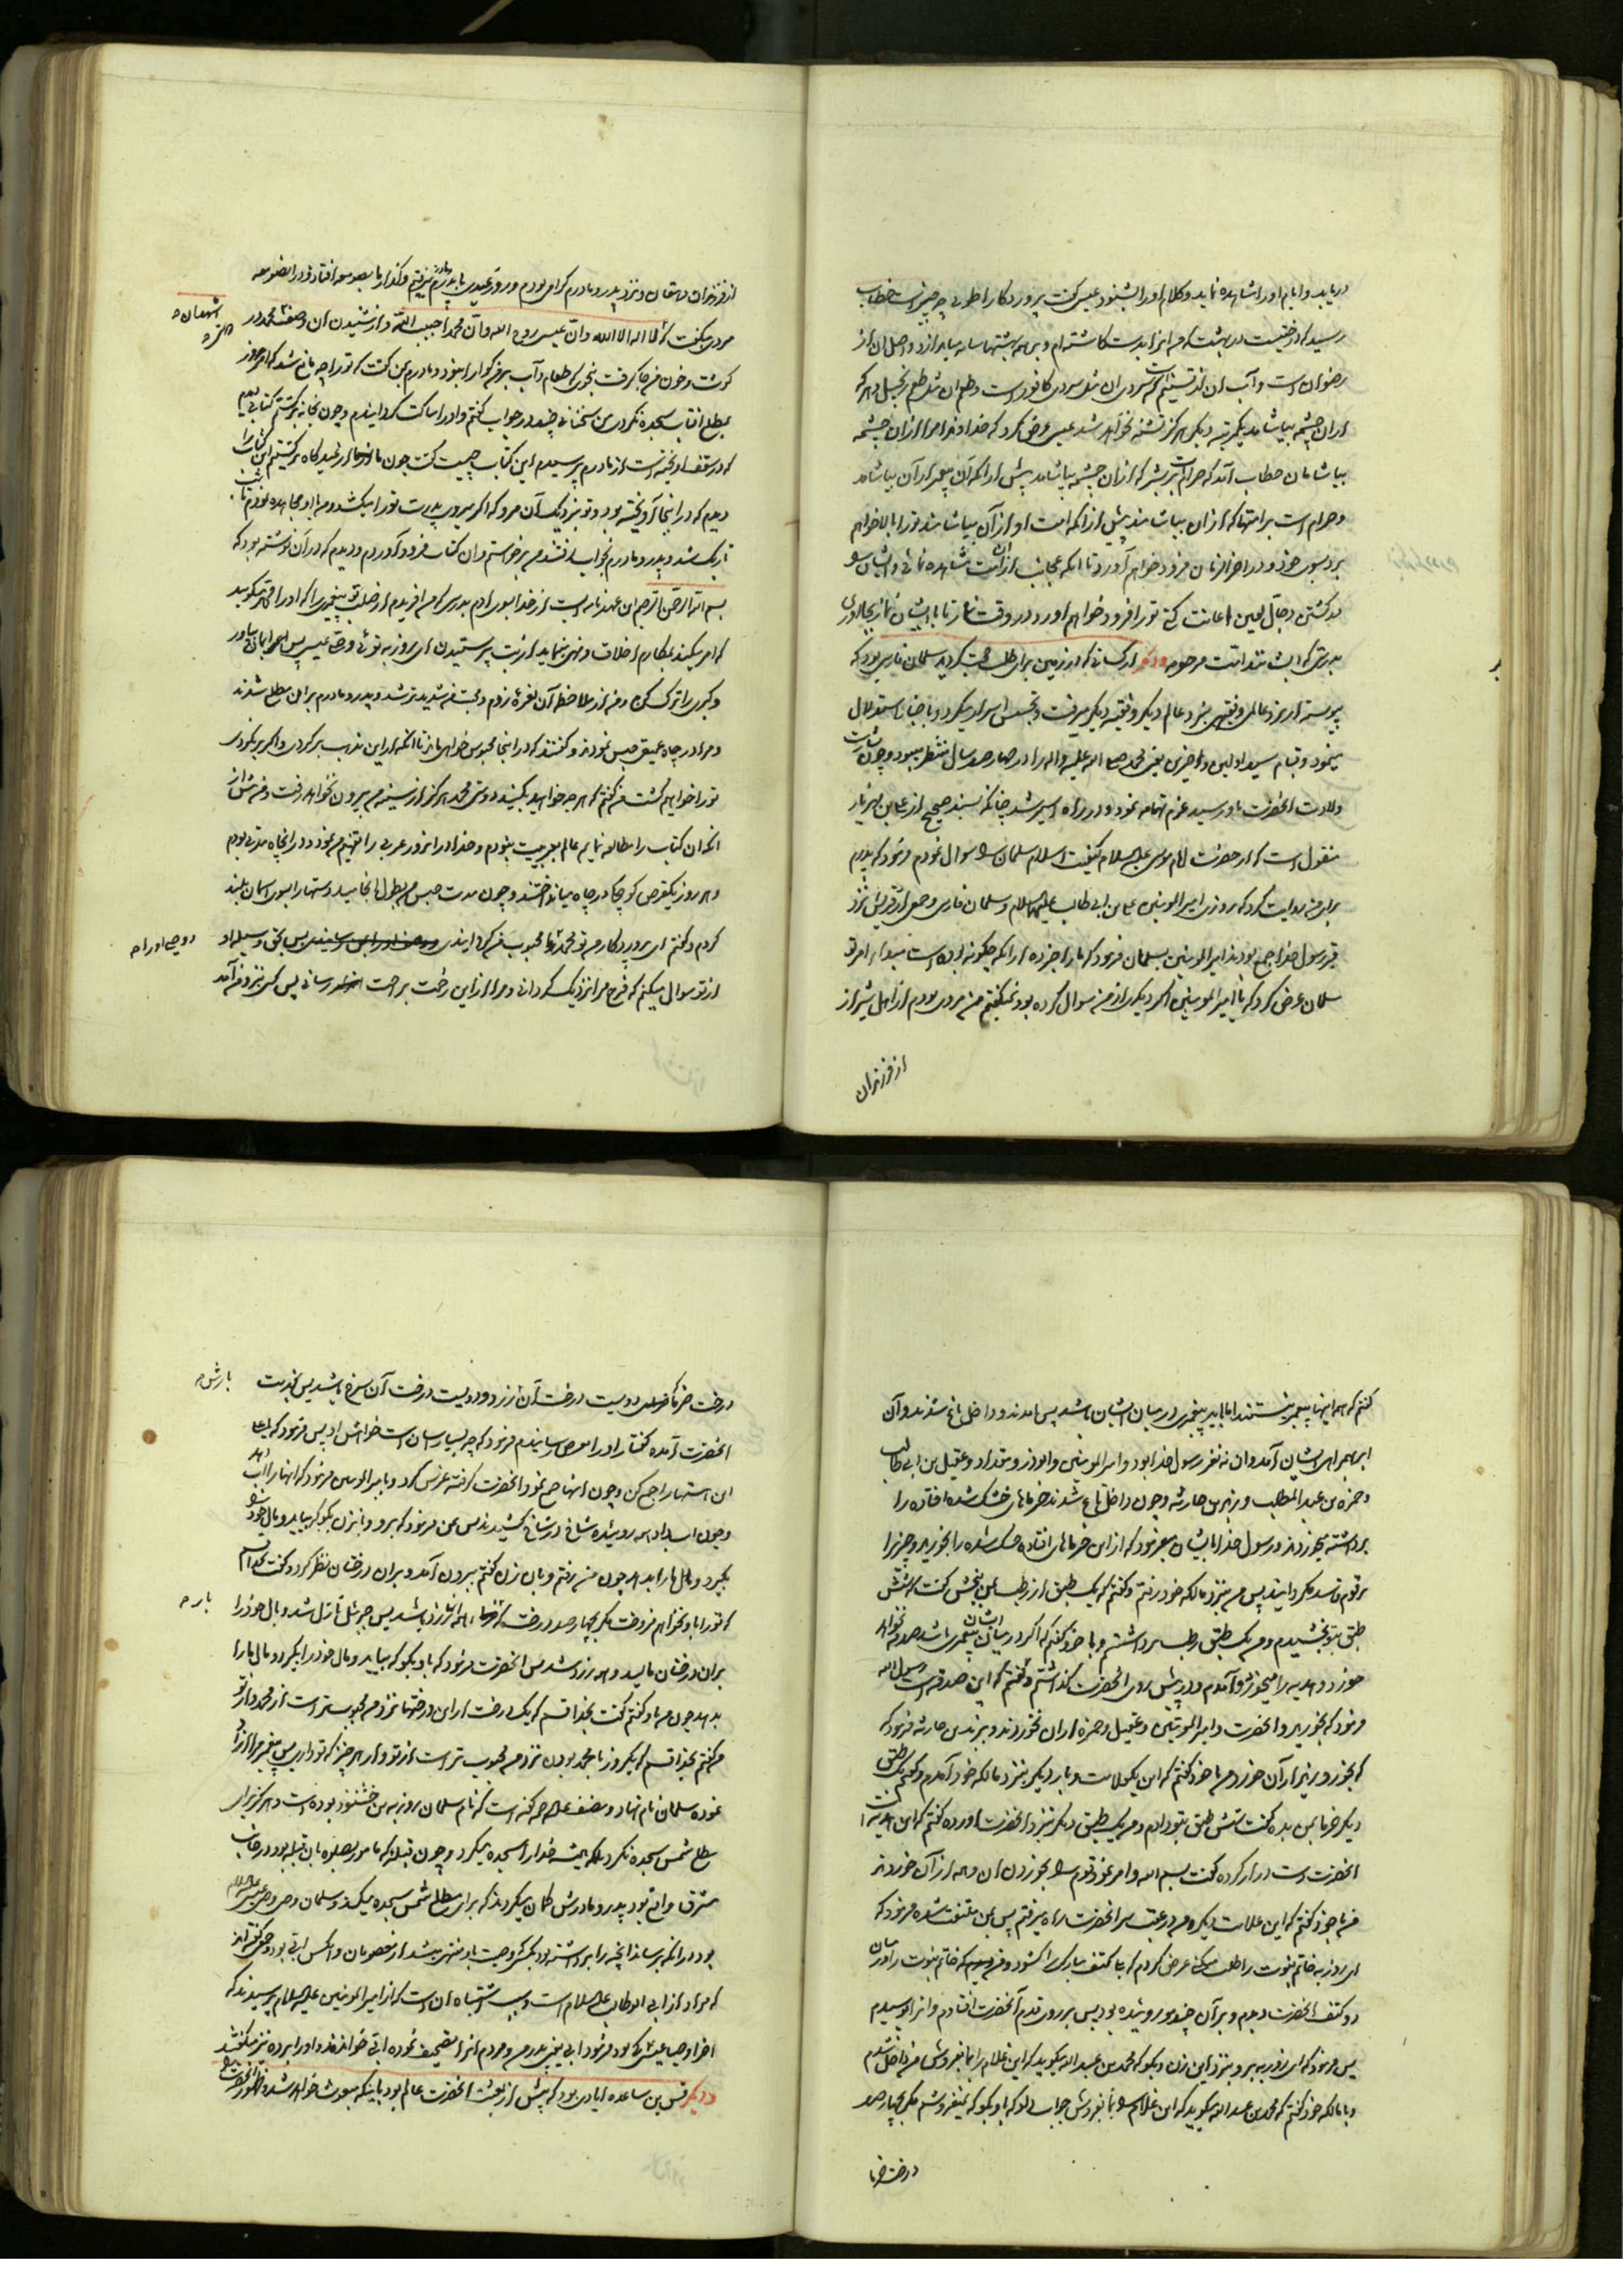 دریابد و ایام او را مشاهده نماید و کلام او را بشنود عیسی گفت پروردگارا طوبی چه چیز است خطاب
رسید که درختیست در بهشت که من آنرا بدست کاشته‌ام و بر همه بهشتها سایه میاندازد و اصل آن از
رضوان است و آب آن از تسنیم است که سردی آن مثل سردی کافور است و طعم آن مثل طعم زنجبیل و هر که
از آن چشمه بیاشامد یکمرتبه دیگر هرگز تشنه نخواهد شد عیسی عرض کرد که خداوندا مرا از آن چشمه
بیاشامان خطاب آمد که حرام است بر بشر که از آن چشمه بیاشامد پیش از آنکه آن پیغمبر از آن بیاشامد
و حرام است بر امتها که از آن بیاشامند پیش از آنکه امت او از آن بیاشامند تو را بالا خواهم
برد بسوی خود و در آخر الزمان فرود خواهم آورد تا آنکه عجایب از آن امت مشاهده نمائی و ایشان را
در کشتن دجال لعین اعانت کنی تو را فرود خواهم آورد در وقت نماز تا با ایشان نماز بجا آوری
بدرستی که ایشانند امت مرحومه و دیگر از کسانی که در زمین برای طلب حجت گردید سلمان فارسی بود که
پیوسته از نزد عالمی و فقیهی بنزد عالم دیگر و فقیه دیگر میرفت و تجسس اسرار میکرد و باخبار استدلال
مینمود و قیام سید اولین و آخرین یعنی محمد صلی الله علیه و اله را در چهارصد سال منتظر میبود و چون بشارت
ولادت آنحضرت باو رسید عزم تهامه نمود و در راه اسیر شد چنانکه بسند صحیح از علی بن مهزیار
منقول است که از حضرت امام موسی علیه السلام کیفیت اسلام سلمان را سوال نمودم فرمود که پدرم
برای من روایت کرد که روزی امیر المومنین علی بن ابی طالب علیهما السلام و سلمان فارسی و جمعی از قریش نزد
قبر رسول خدا جمع بودند امیر المومنین بسلمان فرمود که ما را خبر ده از آنکه چگونه بوده است مبدا امر تو
سلمان عرض کرد که یا امیر المومنین اگر دیگری از من سوال کرده بود نمیگفتم من مردی بودم از اهل شیراز
از فرزندان
از فرزندان دهقان و نزد پدر و مادرم گرامی بودم و روز عیدی با پدرم میرفتم و گذار ما بصومعه افتاد و در آن صومعه
مردی میگفت که لا اله الا الله و ان عیسی روح الله و ان محمدا حبیب الله و از شنیدن آن وصف محمد در
اشهد ان
گوشت و خون من جا گرفت بنحوی که طعام و آب بر من گوارا نبود و مادرم بمن گفت که تو را چه مانع شد که امروز
بمطلع آفتاب سجده نکردی من سخنانی چند در جواب گفتم و او را ساکت گردانیدم و چون بخانه برگشتم کتابی دیدم
که در سقف آویخته است از مادرم پرسیدم این کتاب چیست گفت چون ما از عیدگاه برگشتیم این کتاب را
دیدم که در اینجا آویخته بود و تو نزدیک آن مرو که اگر میروی پدرت تو را میکشد و من با او مجاهده بودم تا شب
تاریک شد و پدر و مادرم بخواب رفتند من برخواستم و آن کتاب فرود آوردم و دیدم که در آن نوشته بود که
بسم الله الرحمن الرحیم این عهدنامه ایست از خدا بسوی آدم بدرستی که من آفریدم از صلب تو پیغمبری را که او را محمد میگویند
که امر میکند بمکارم اخلاق و نهی مینماید از بت پرستیدن ای روزبه تو وصی عیسی پس ایمان بیاور
و گبری را ترک کن و من از ملاحظه آن نعره زدم و محنت من شدیدتر شد و پدر و مادرم بر این مطلع شدند
و مرا در چاه عمیقی حبس نمودند و گفتند که در اینجا محبوس خواهی ماند تا آنکه از این مذهب برگردی و اگر برنگردی
تو را خواهیم کشت من گفتم که هر چه خواهید بکنید دوستی محمد هرگز از سینه من بیرون نخواهد رفت و من پیش از
آنکه آن کتاب را مطالعه نمایم عالم بعربیت نبودم و خدا در آنروز عربی را تفهیم من نمود و در آن چاه مدتی بودم
و هر روز یکقرص کوچک در چاه میانداختند و چون مدت حبس من بطول انجامید دستها را بسوی آسمان بلند
کردم و گفتم ای پروردگار من تو محمد را محبوب من گردانیدی پس بحق وسیله او
و وصی او را
از تو سوال میکنم که فرج مرا نزدیک گردانی و مرا از این زحمت براحت رسانی پس کسی نزد من آمد
گفتم که همه اینها پیغمبر نیستند اما باید پیغمبری در میان ایشان باشد پس آمدند و داخل باغ شدند و آن
ابر همراه ایشان آمد و آن نه نفر رسول خدا بود و امیر المومنین و ابوذر و مقداد و عقیل بن ابی طالب
و حمزه بن عبد المطلب و زید بن حارثه و چون داخل باغ شدند خرماهای خشک شده افتاده را
برداشته میخوردند و رسول خدا بایشان میفرمود که از این خرماهای افتاده خشک شده را بخورید و چیزی را
بر قوم فاسد مگردانید پس من بنزد مالکه خود رفتم و گفتم که یک طبق از رطب بمن ببخش گفت که شش
طبق بتو بخشیدم و من یک طبق رطب برداشتم و با خود گفتم که اگر در میان ایشان پیغمبری باشد صدقه نخواهد
خورد و هدیه را میخورد آمدم و در پیش روی آنحضرت گذاشتم و گفتم که این صدقه است رسول الله
فرمود که بخورید و آنحضرت و امیر المومنین و عقیل و حمزه از آن نخوردند و بزید بن حارثه فرمود که
که بخور و زید از آن خورد من با خود گفتم که این یک علامت و بار دیگر بنزد مالکه خود آمدم و گفتم یک طبق
دیگر خرما بمن بده گفت شش طبق بتو دادم و من یک طبق دیگر بنزد آنحضرت آورده گفتم که این هدیه است
آنحضرت دست دراز کرده گفت بسم الله و امر نمود قوم را بخوردن آن و همه از آن خوردند
من با خود گفتم که این علامت دیگر و من در عقب سر آنحضرت راه میرفتم پس بمن ملتفت شده فرمود که
ای روزبه خاتم نبوت را طلب میکنی عرض کردم که بلی کتف مبارک را گشود و من خاتم نبوت را در میان
دو کتف آنحضرت دیدم و بر آن چند مو روئیده بود پس بر روی قدم آنحضرت افتادم و آنرا بوسیدم
پس فرمود که ای روزبه برو بنزد این زن و بگو که محمد بن عبد الله میگوید که این غلام را بما بفروش من داخل شدم
و با مالکه خود گفتم که محمد بن عبد الله میگوید که این غلام را بما بفروش جواب داد که باو بگو که نمیفروشم مگر بچهارصد
درخت خرما
درخت خرما که دویست درخت آن زرد و دویست درخت آن سرخ باشد پس بخدمت
بارش
آنحضرت آمده گفتار او را بعرض رسانیدم فرمود که چه بسیار آسان است خواهش او پس فرمود که یا علی
این هستها را جمع کن و چون آنها جمع نمود آنحضرت گرفته غرس کرد و بامیر المومنین فرمود که آنها را آب ده
و چون آب داد همه روئیده شاخ در شاخ کشیدند پس بمن فرمود که برو و بانزن بگو که بیاید و مال خود را
بگیرد و مال ما را بدهد چون من رفتم و بآن زن گفتم بیرون آمد و بر آن درختان نظر کرد و گفت بخدا قسم
که تو را باو نخواهم فروخت مگر بچهارصد درخت که همه آنها زرد باشد پس جبرئیل نازل شد و بال خود را
بار
بر آن درختان مالید و همه زرد شد پس آنحضرت فرمود که باو بگو که بیاید و مال خود را بگیرد و مال ما را
بدهد چون من باو گفتم گفت بخدا قسم که یک درخت از این درختها نزد من محبوبتر است از محمد و از تو
من گفتم بخدا قسم که یک روز با محمد بودن نزد من محبوب‌تر است از تو و از هر چیز که تو داری پس پیغمبر مرا آزاد
نموده سلمان نام نهاد و مصنف علیه الرحمه گفته است که نام سلمان روزبه بن خشنوذ بوده است و هرگز برای
مطلع شمس سجده نکرد بلکه همیشه خدا را سجده میکرد و چون قبله که مامور بصلوة بآن قبله بود در جانب
مشرق واقع بود پدر و مادرش گمان میکردند که برای مطلع شمس سجده میکند و سلمان وصی وصی عیسی علیه السلام
بود در آنکه برساند آنچه را برداشته بود بکسی که وصیت باو منتهی میشد از معصومان و آنکس ابی بود و جمعی گفته‌اند
که مراد از ابی ابوطالب علیه السلام است و سبب اشتباه آن است که از امیر المومنین علیه السلام پرسیدند که
آخر اوصیاء عیسی که بود فرمود ابی یعنی پدر من و مردم آنرا تصحیف نموده ابی خواندند و او را برده نیز میگفتند
و دیگر قس بن ساعده ایادی بود که پیش از بعثت آنحضرت عالم بود باینکه مبعوث خواهد شد و ظهور آنحضرت را